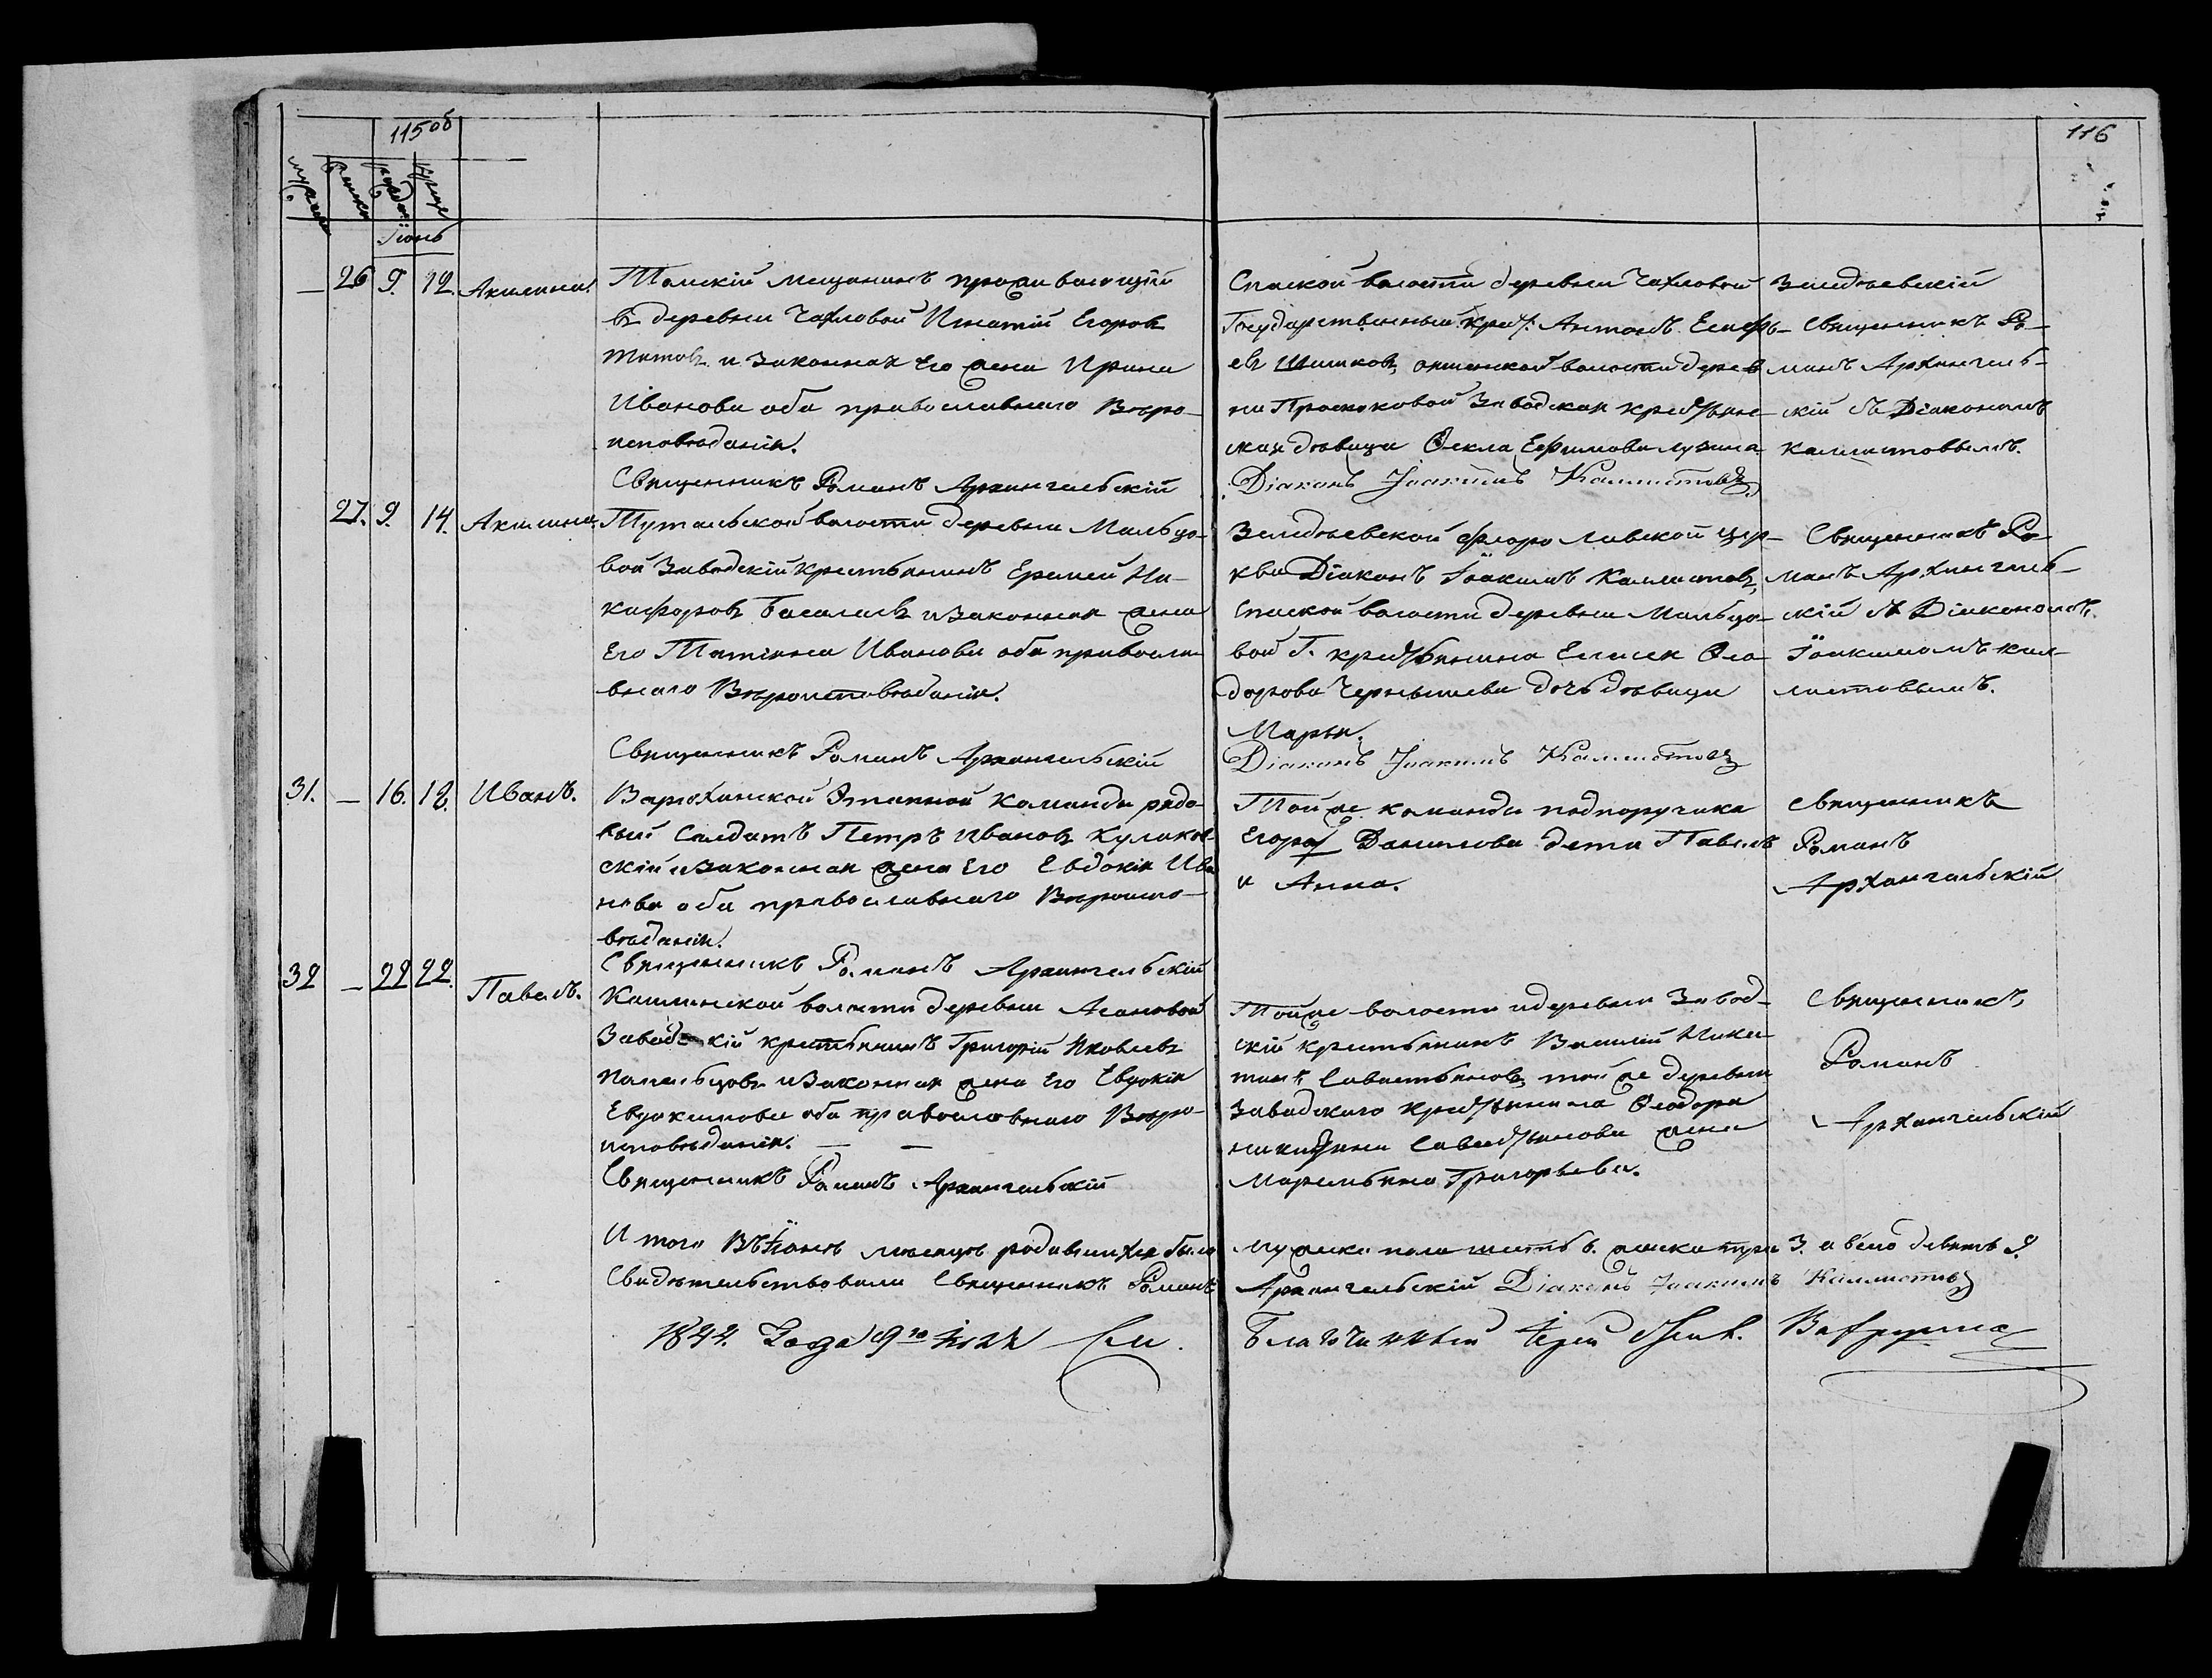 115об
116
мужеска
женска
рожде
креще
Іюнь
— 26 9. 12. Акилина.
Томскій мещанинъ проживающій
въ деревни Чахловой Игнатій Егоровъ
Титовъ и законная Его жена Ирина
Иванова оба православнаго Вѣро-
исповѣданія.
Священникъ Романъ Архангельскій
Спаской волости деревни Чахловой
Государственный крест: Антонъ Елисѣ-
евъ Шишковъ, волости дерев
ни Проскоковой Заводская крестьянс-
кая дѣвица Ѳекла Ефимова
Діаконъ Іоакимъ Каллистовъ
Зеледѣевскій
Священникъ Ро-
манъ Архангель-
скій съ Діакономъ
Каллистовымъ.
27. 9. 14. Акилина.
Тутальской волости деревни Мальцо-
вой Заводскій крестьянинъ Еремей Ни-
кифоровъ Басалаевъ и Законная жена
Его Татіана Иванова оба правосла-
внаго Вѣроисповѣданія.
Священникъ Романъ Архангельскій
Зеледѣевской Флоро Лавской цер-
кви Діаконъ Іоакимъ Каллистовъ,
Спаской волости деревни Мальцо-
вой Г. крестьянина Елисея Ѳео-
дорова Чернышева дочь дѣвица
Марья.
Діаконъ Іоакимъ Каллистовъ
Священникъ Ро-
манъ Архангель-
скій съ Діакономъ
Іоакимомъ Кал-
листовымъ.
31. — 16. 18. Иванъ.
Варюхинской Этапной Команды рядо-
вый Салдатъ Петръ Ивановъ Куликов-
скій и законная жена Его Евдокія Ива
нова оба православнаго Вѣроиспо-
вѣданія.
Священникъ Романъ Архангельскій
Той же команды подпоручика
Егора Данилова дети Павелъ
и Анна.
Священникъ
Романъ
Архангельскій
32 — 22 22. Павелъ.
Кашминской волости деревни Асановой
Заводскій крестьянинъ Григорій Яковлевъ
Памельцовъ и Законная жена Его Евдокія
Евдокимова оба православнаго Вѣро-
исповѣданія. — —
Священникъ Романъ Архангельскій
Той же волости и деревни Завод-
скій крестьянинъ Василій Ники
тинъ Савастьяновъ, той же деревни
Заводскаго крестьянина Ѳеодора
Никитина Савастьянова жена
Маремьяна Григорьева.
Священникъ
Романъ
Архангельскій
Итого Въ Іюнѣ месяцѣ родившихся было мужеска пола шесть 6. женска три 3. а всего девять 9.
Свидѣтельствовали Священникъ Романъ Архангельскій Діаконъ Іоакимъ Каллистовъ
1844. Года 9го Благочинный Іерей